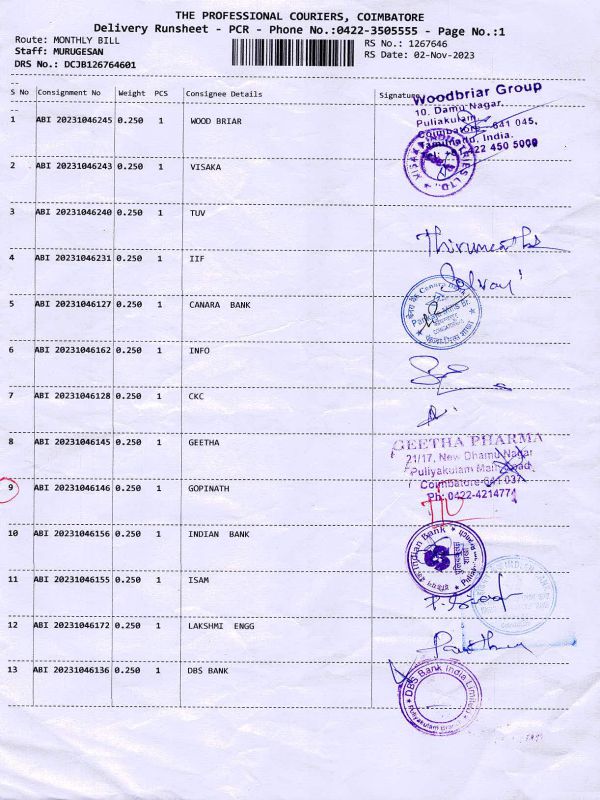 THE PROFESSIONAL COURIERS, COIMBATORE
Delivery Runsheet - PCR - Phone No.:0422-3505555 - Page No.:1
Route: MONTHLY BILL
RS No.: 1267646
Staff: MURUGESAN
RS Date: 02-Nov-2023
DRS No.: DCJB126764601
S No Consignment No Weight PCS Consignee Details Signature
1 ABI 20231046245 0.250 1 WOOD BRIAR
Woodbriar Group
10, Damu Nagar,
Puliakulam
Coimbatore - 641 045,
Tamilnadu, India.
422 450 5000
2 ABI 20231046243 0.250 1 VISAKA
VISAKA INDUSTRIES LTD.,
3 ABI 20231046240 0.250 1 TUV
4 ABI 20231046231 0.250 1 IIF
5 ABI 20231046127 0.250 1 CANARA BANK
Canara Bank
6 ABI 20231046162 0.250 1 INFO
7 ABI 20231046128 0.250 1 CKC
8 ABI 20231046145 0.250 1 GEETHA
GEETHA PHARMA
21/17, New Dhamu Nagar
Puliyakulam Main Road
Coimbatore-641 037
Ph: 0422-4214771
9 ABI 20231046146 0.250 1 GOPINATH
10 ABI 20231046156 0.250 1 INDIAN BANK
Indian Bank
11 ABI 20231046155 0.250 1 ISAM
12 ABI 20231046172 0.250 1 LAKSHMI ENGG
13 ABI 20231046136 0.250 1 DBS BANK
DBS Bank India Limited
Puliyakulam Branch